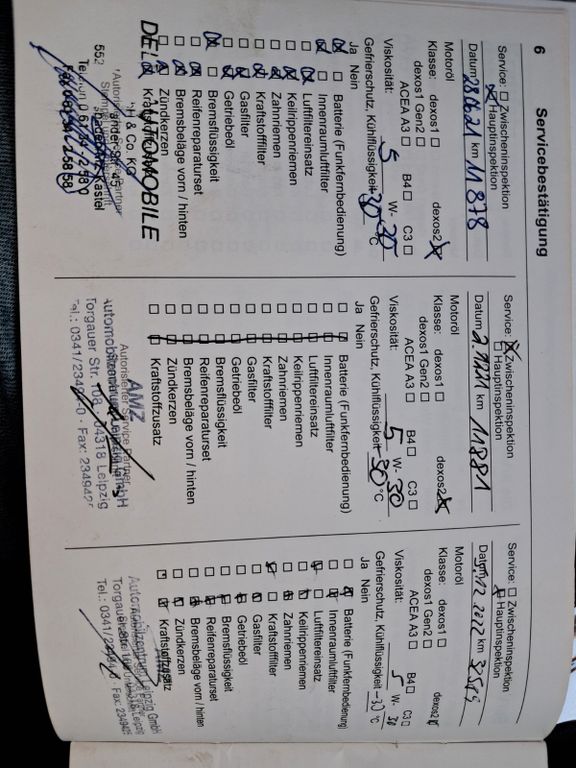 6 Servicebestätigung
Service: ☐ Zwischeninspektion
☒ Hauptinspektion
Datum 28.06.21 km 11 878
Motoröl
Klasse: dexos1 ☐ dexos2 ☒
dexos1 Gen2 ☐
ACEA A3 ☐ B4 ☐ C3 ☐
Viskosität: 5 W- 30
Gefrierschutz, Kühlflüssigkeit -30 °C
Ja Nein
Batterie (Funkfernbedienung)
Innenraumluftfilter
Luftfiltereinsatz
Keilrippenriemen
Zahnriemen
Kraftstofffilter
Gasfilter
Getriebeöl
Bremsflüssigkeit
Reifenreparaturset
Bremsbeläge vorn / hinten
Zündkerzen
AUTOMOBILE
H & Co. KG
552
Kastel
Service: ☒ Zwischeninspektion
☐ Hauptinspektion
Datum km 11881
Motoröl
Klasse: dexos1 ☐ dexos2 ☒
dexos1 Gen2 ☐
ACEA A3 ☐ B4 ☐ C3 ☐
Viskosität: 5 W- 30
Gefrierschutz, Kühlflüssigkeit -30 °C
Ja Nein
Batterie (Funkfernbedienung)
Innenraumluftfilter
Luftfiltereinsatz
Keilrippenriemen
Zahnriemen
Kraftstofffilter
Gasfilter
Getriebeöl
Bremsflüssigkeit
Reifenreparaturset
Bremsbeläge vorn / hinten
Zündkerzen
Kraftstoffzusatz
AMZ
Autorisierter Service Partner
Torgauer Str. 04318 Leipzig
Tel.: 0341/ Fax:
Service: ☐ Zwischeninspektion
☒ Hauptinspektion
Datum 12 2022 km
Motoröl
Klasse: dexos1 ☐ dexos2 ☒
dexos1 Gen2 ☐
ACEA A3 ☐ B4 ☐ C3 ☐
Viskosität: 5 W- 30
Gefrierschutz, Kühlflüssigkeit °C
Ja Nein
Batterie (Funkfernbedienung)
Innenraumluftfilter
Luftfiltereinsatz
Keilrippenriemen
Zahnriemen
Kraftstofffilter
Gasfilter
Getriebeöl
Bremsflüssigkeit
Reifenreparaturset
Bremsbeläge vorn / hinten
Zündkerzen
Kraftstoffzusatz
Leipzig GmbH
Tel.: 0341/ Fax: